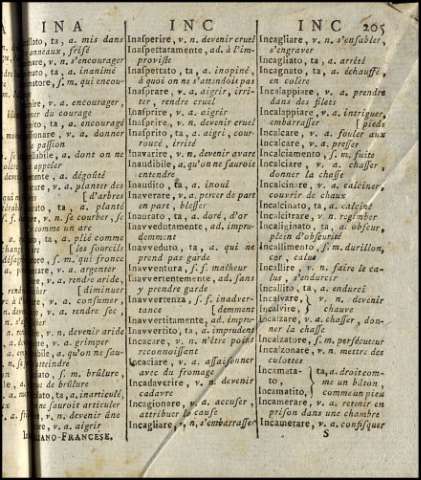 INA
INC
INC 205
ellato, ta, a. mis dans
anneaux, frisé
are, v. n. s'encourager
ato, ta, a. inanimé
atore, s. m. qui encou-
are, v. a. encourager,
er du courage
ato, ta, a. encouragé
ionare, v. a. donner
passion
abile, a. dont on ne
appeler
amente, a. dégoûté
are, v. a. planter des
[d'arbres
ato, ta, a. planté
v. n. se courber, se
comme un arc
ta, a. plié comme
[les sourcils
s. m. qui fronce
are, v. a. argenter
are, v. a. rendre aride,
[diminuer
are, v. a. consumer,
v. a. rendre sec,
v. n. devenir aride
v. a. grimper
bile, a. qu'on ne sau-
atteindre
s. m. brûlure,
de brûlure
ato, ta, a. inarticulé,
ne sauroit articuler
v. n. devenir âne
v. a. aigrir
ITALIANO-FRANCESE.
Inasperire, v. n. devenir cruel
Inaspettatamente, ad. à l'im-
proviste
Inaspettato, ta, a. inopiné,
à quoi on ne s'attendoit pas
Insprare, v. a. aigrir, irri-
ter, rendre cruel
Inasprire, v. a. aigrir
Inasprire, v. n. devenir cruel
Inasprito, ta, a. aigri, cour-
roucé, irrité
Inavarire, v. n. devenir avare
Inaudibile, a. qu'on ne sauroit
entendre
Inaudito, ta, a. inoui
Inaverare, v. a. percer de part
en part, blesser
Inaurato, ta, a. doré, d'or
Inavvedutamente, ad. impru-
demment
Inavveduto, ta, a. qui ne
prend pas garde
Inavventura, s. f. malheur
Inavvertentemente, ad. sans
y prendre garde
Inavvertenza, s. f. inadver-
tance [demment
Inavvertitamente, ad. impru-
Inavvertito, ta, a. imprudent
Incacare, v. n. n'être point
reconnoissant
Incaciare, v. a. assaisonner
avec du fromage
Incadaverire, v. n. devenir
cadavre
Incagionare, v. a. accuser,
attribuer la cause
Incagliare, v. n. s'embarrasser
Incagliare, v. n. s'ensabler,
s'engraver
Incagliato, ta, a. arrêté
Incagnato, ta, a. échauffé,
en colère
Incalappiare, v. a. prendre
dans des filets
Incalappiare, v. a. intriguer,
embarrasser [pieds
Incalcare, v. a. fouler aux
Incalcare, v. a. presser
Incalciamento, s. m. fuite
Incalciare, v. a. chasser,
donner la chasse
Incalcinare, v. a. calciner,
couvrir de chaux
Incalcinato, ta, a. calciné
Incalcitrare, v. n. regimber
Incaliginato, ta, a. obscur,
plein d'obscurité
Incallimento, s. m. durillon,
cor, calus
Incallire, v. n. faire le ca-
lus, s'endurcir
Incallito, ta, a. endurci
Incalvare, } v. n. devenir
Incalvire, } chauve
Incalzare, v. a. chasser, don-
ner la chasse
Incalzatore, s. m. persécuteur
Incalzonare, v. n. mettre des
culottes
Incamata- } ta, a. droit com-
to, } me un bâton,
Incamatito, } comme un pieu
Incamerare, v. a. retenir en
prison dans une chambre
Incamerare, v. a. confisquer
S